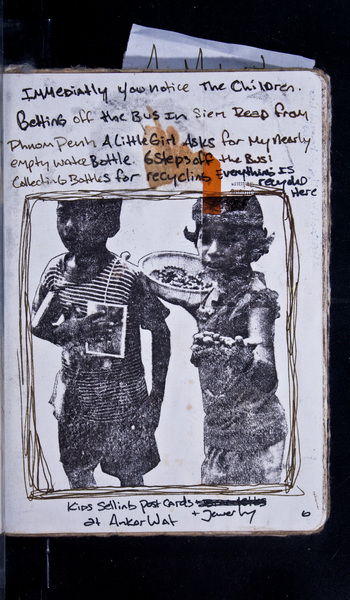 Immediatly you notice The Children.
Getting off the Bus In Siem Reap from
Phnom Penh A Little Girl Asks for My nearly
empty water Bottle. 6 Steps off the Bus!
Collecting Bottles for recycling Everything IS
recycled
Here
Kids Selling Post Cards
at Ankor Wat + Jewerly
6